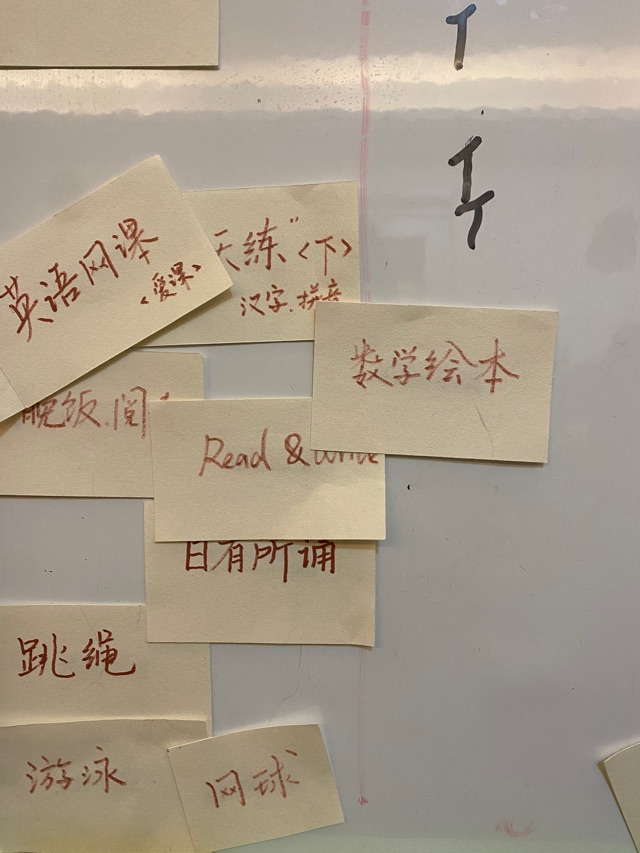 英语网课
<爱课>
天练"<下>
汉字.拼音
数学绘本
晚饭.阅
Read & Write
日有所诵
跳绳
游泳
网球